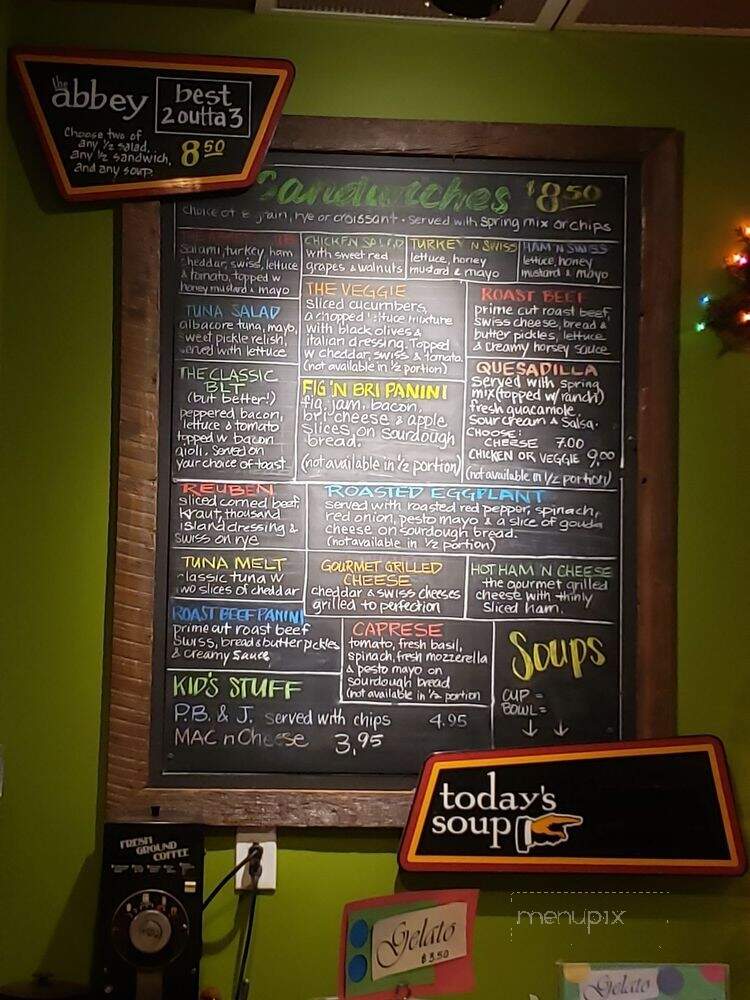 the
abbey
best
2 outta 3
Choose two of
any 1/2 salad,
any 1/2 sandwich,
and any soup.
8.50
Sandwiches $8.50
choice of 8 grain, rye or croissant - served with spring mix or chips
salami, turkey ham
cheddar, swiss, lettuce
& tomato, topped w
honey mustard & mayo
CHICKEN SALAD
with sweet red
grapes & walnuts
TURKEY N SWISS
lettuce, honey
mustard & mayo
HAM N SWISS
lettuce, honey
mustard & mayo
TUNA SALAD
albacore tuna, mayo,
sweet pickle relish,
served with lettuce
THE VEGGIE
sliced cucumbers,
a chopped lettuce mixture
with black olives &
italian dressing. Topped
w cheddar, swiss & tomato.
(not available in 1/2 portion)
ROAST BEEF
prime cut roast beef,
swiss cheese, bread &
butter pickles, lettuce
& creamy horsey sauce
THE CLASSIC
BLT
(but better!)
peppered bacon,
lettuce & tomato
topped w bacon
aioli. Served on
your choice of toast
FIG 'N BRI PANINI
fig jam, bacon,
bri cheese & apple
slices on sourdough
bread.
(not available in 1/2 portion)
QUESADILLA
served with spring
mix (topped w/ ranch)
fresh guacamole
sour cream & salsa.
CHOOSE:
CHEESE 7.00
CHICKEN OR VEGGIE 9.00
(not available in 1/2 portion)
REUBEN
sliced corned beef,
kraut, thousand
island dressing &
swiss on rye
ROASTED EGGPLANT
served with roasted red pepper, spinach,
red onion, pesto mayo & a slice of gouda
cheese on sourdough bread.
(not available in 1/2 portion)
TUNA MELT
classic tuna w
two slices of cheddar
GOURMET GRILLED
CHEESE
cheddar & swiss cheeses
grilled to perfection
HOT HAM N CHEESE
the gourmet grilled
cheese with thinly
sliced ham.
ROAST BEEF PANINI
prime cut roast beef
swiss, bread & butter pickles
& creamy sauce
CAPRESE
tomato, fresh basil,
spinach, fresh mozzerella
& pesto mayo on
sourdough bread
(not available in 1/2 portion
Soups
CUP =
BOWL =
KID'S STUFF
P.B. & J. served with chips 4.95
MAC n Cheese 3.95
today's
soup
FRESH
GROUND
COFFEE
Gelato
$3.50
menupix
Gelato